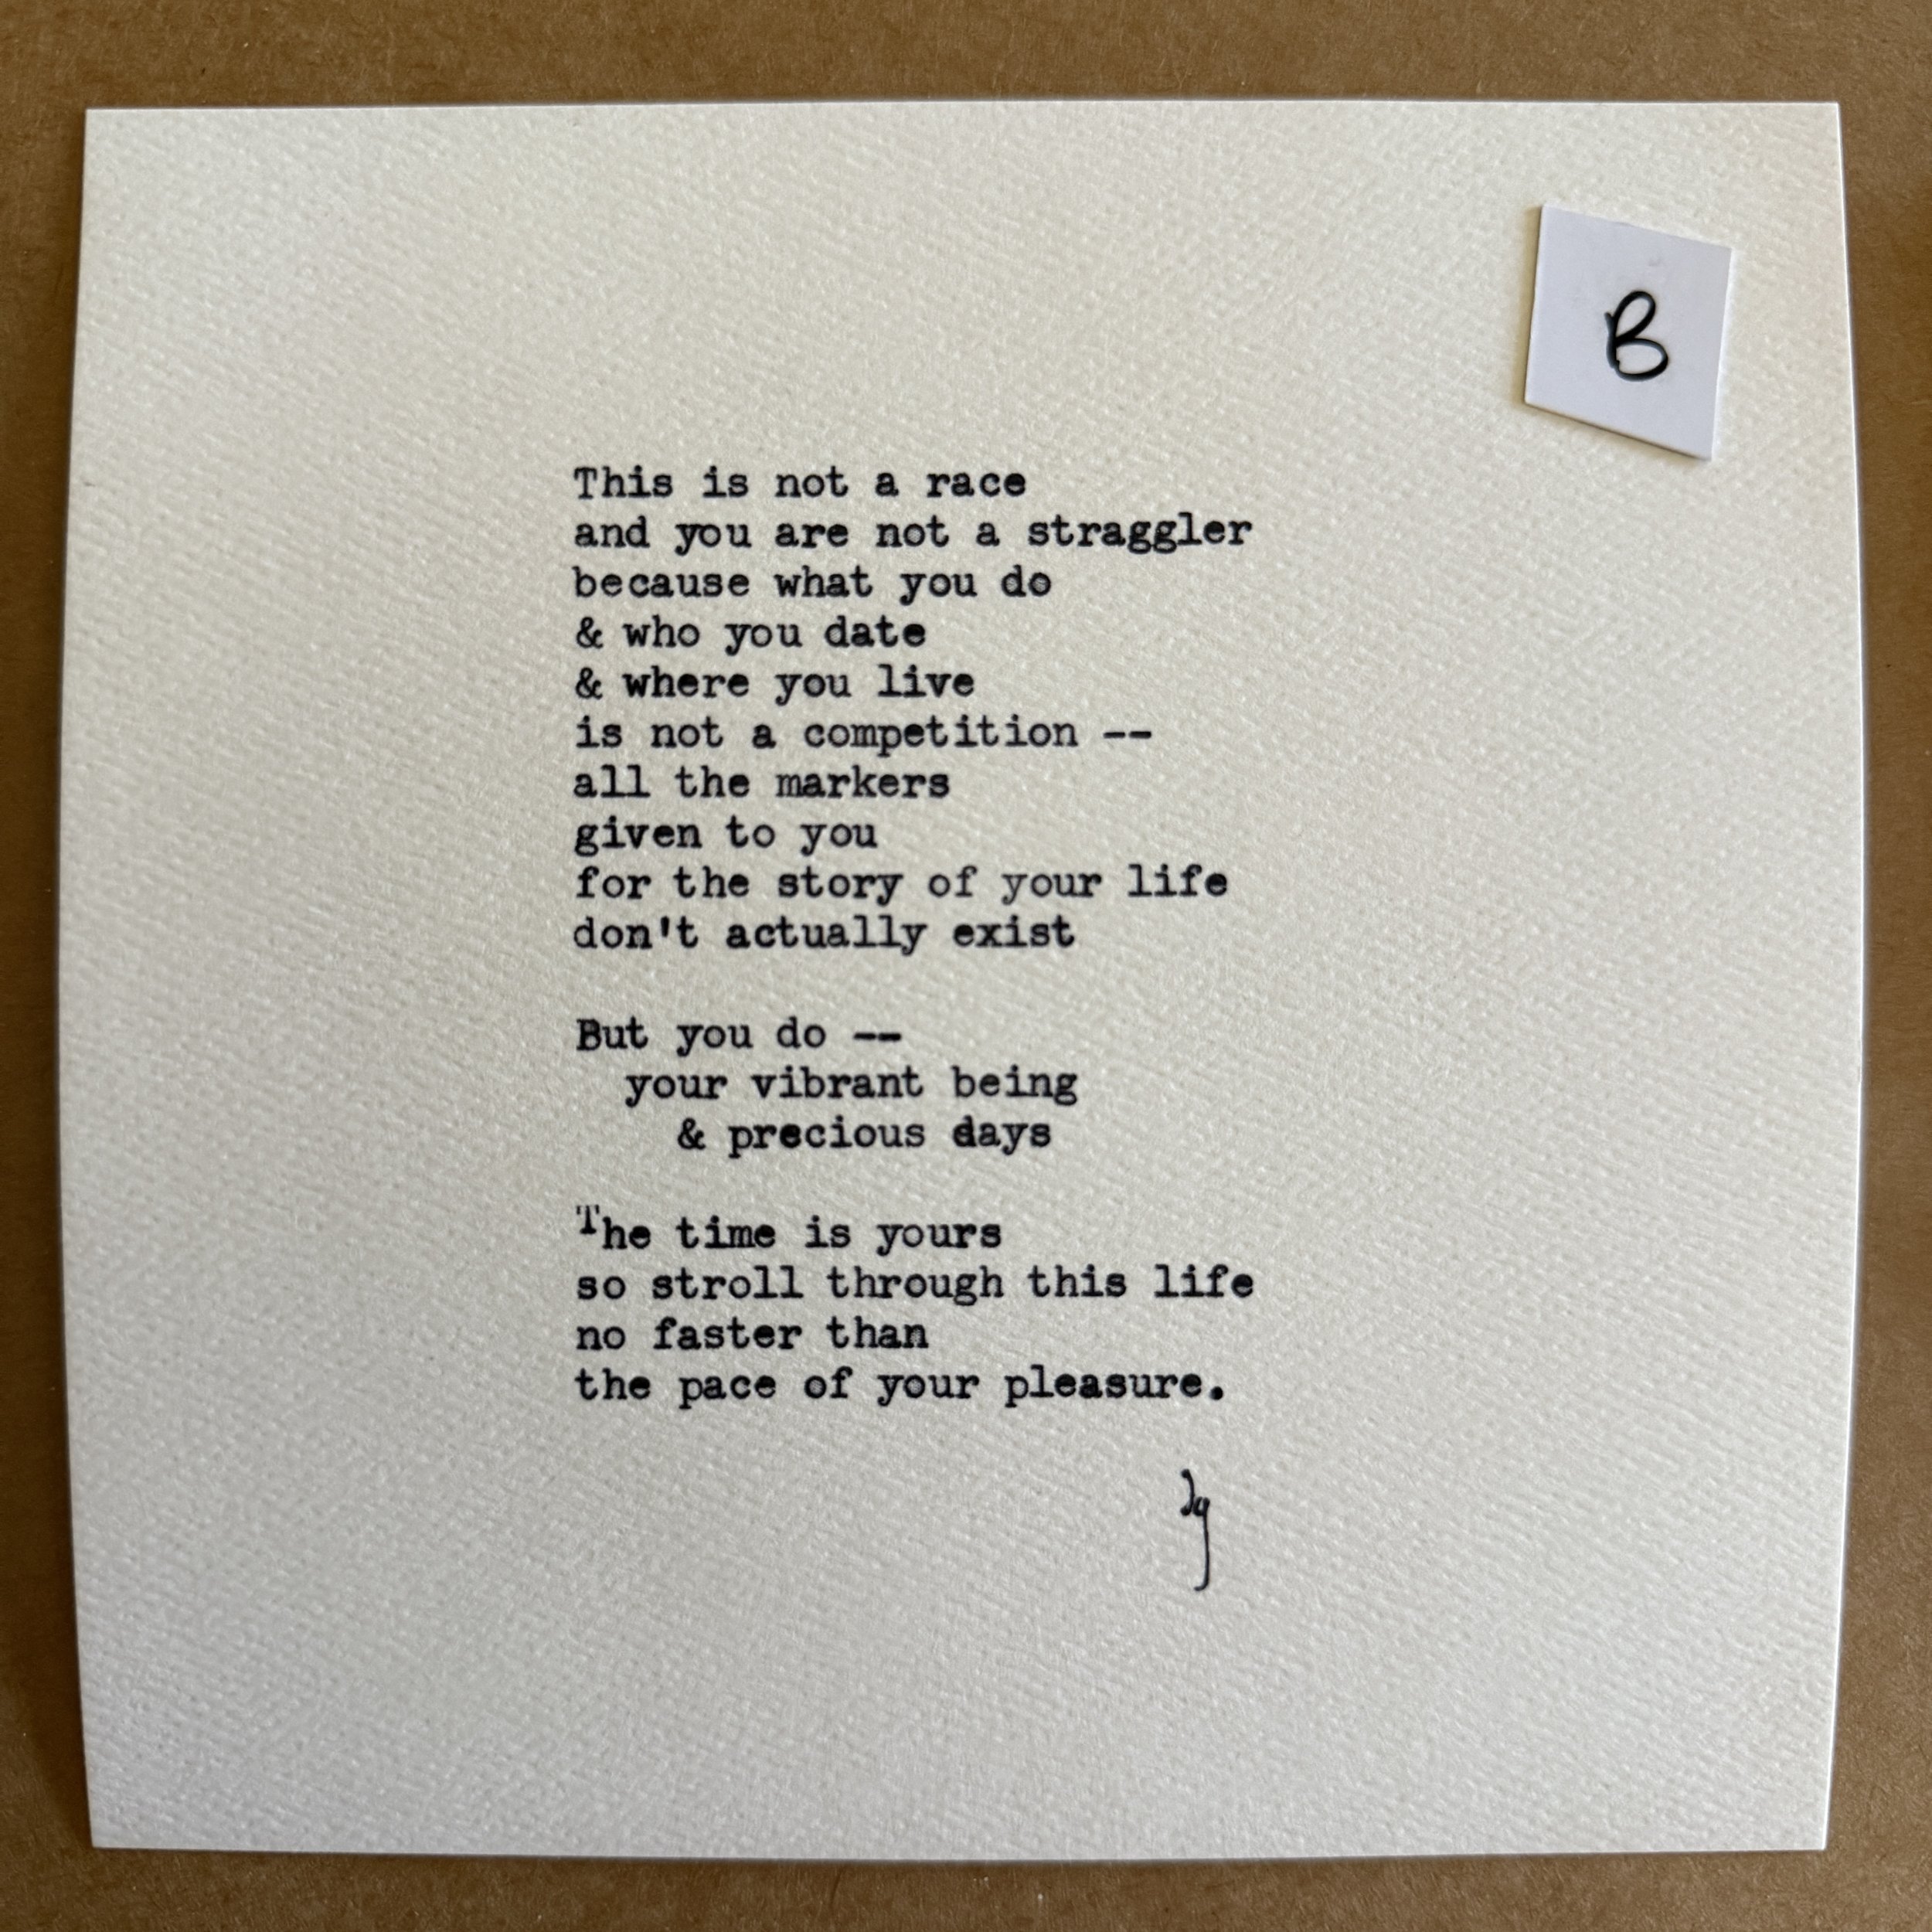 B
This is not a race
and you are not a straggler
because what you do
& who you date
& where you live
is not a competition --
all the markers
given to you
for the story of your life
don't actually exist
But you do --
your vibrant being
& precious days
The time is yours
so stroll through this life
no faster than
the pace of your pleasure.